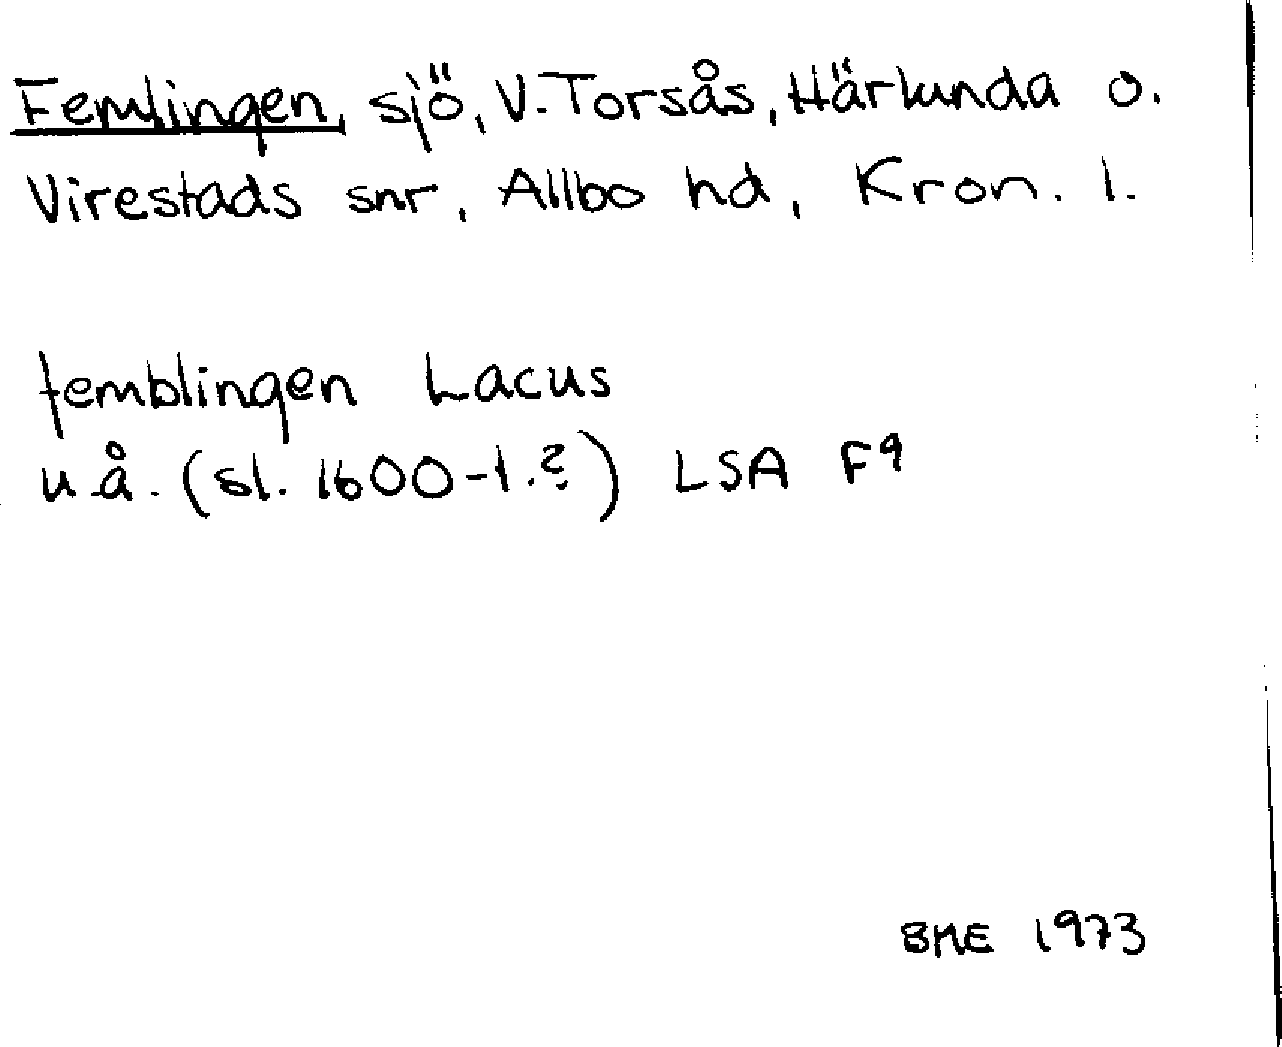 Femlingen, sjö, V. Torsås, Härlunda o.
Virestads snr, Allbo hd, Kron. l.
femblingen Lacus
u.å. (sl. 1600-t.?) LSA F9
BME 1973